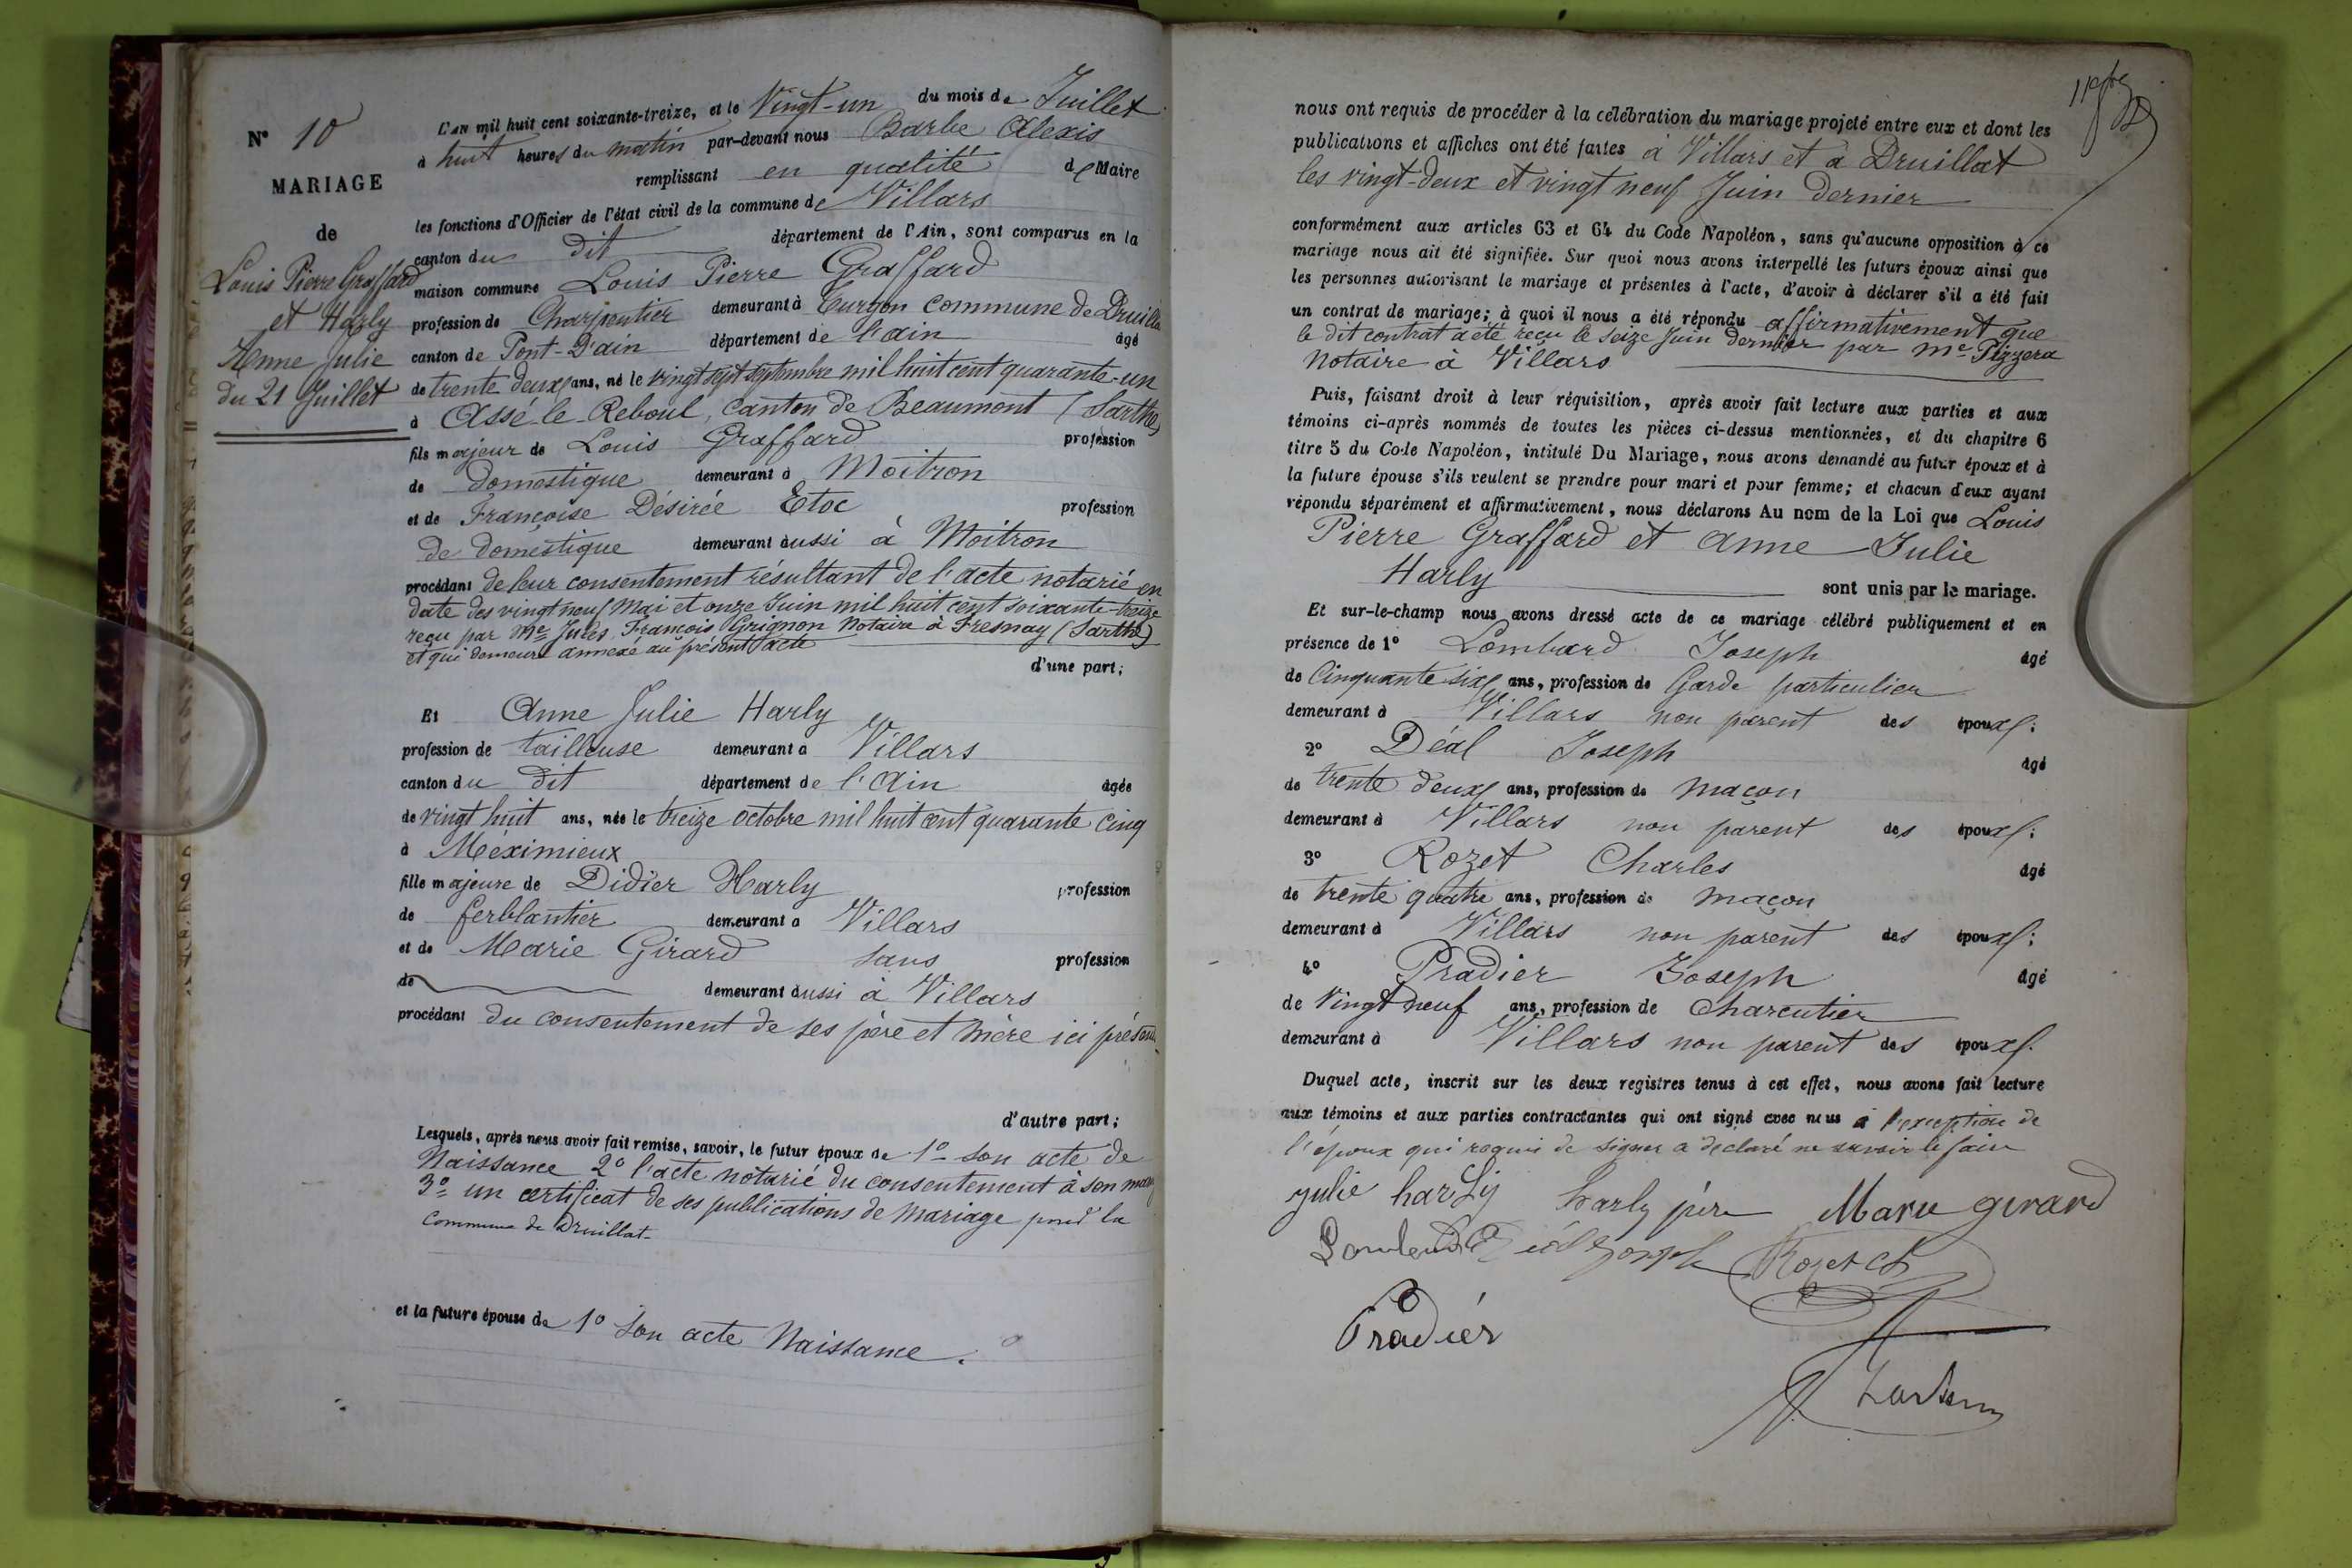 N° 10
MARIAGE
de
Louis Pierre Graffard
et Harly
Anne Julie
du 21 Juillet
L'an mil huit cent soixante-treize, et le Vingt-un du mois de Juillet
à huit heures du matin par-devant nous Barbe Alexis
remplissant en qualité de Maire
les fonctions d'Officier de l'état civil de la commune de Villars
canton du dit département de l'Ain, sont comparus en la
maison commune Louis Pierre Graffard
profession de Charpentier demeurant à Turgon commune de Druilla
canton de Pont-D'ain département de l'ain âgé
de trente deux ans, né le vingt sept septembre mil huit cent quarante-un
à Assé-le-Reboul, canton de Beaumont (Sarthe)
fils majeur de Louis Graffard profession
de domestique demeurant à Moitron
et de Françoise Désirée Etoc profession
de domestique demeurant aussi à Moitron
procédant de leur consentement résultant de l'acte notarié en
date des vingt neuf Mai et onze Juin mil huit cent soixante-treize
reçu par Me Jules François Grignon Notaire à Fresnay (Sarthe)
et qui demeure annexé au présent acte
d'une part;
Et Anne Julie Harly
profession de tailleuse demeurant à Villars
canton du dit département de l'Ain âgée
de vingt huit ans, née le treize octobre mil huit cent quarante cinq
à Méximieux
fille majeure de Didier Harly profession
de ferblantier demeurant à Villars
et de Marie Girard sans profession
de demeurant aussi à Villars
procédant du consentement de ses père et mère ici présents
d'autre part;
Lesquels, après nous avoir fait remise, savoir, le futur époux de 1° son acte de
Naissance 2° l'acte notarié du consentement à son mari
3° un certificat de ses publications de Mariage pour la
Commune de Druillat
et la future épouse de 1° Son acte Naissance.
nous ont requis de procéder à la célébration du mariage projeté entre eux et dont les
publications et affiches ont été faites à Villars et à Druillat
les vingt-deux et vingt neuf Juin dernier
conformément aux articles 63 et 64 du Code Napoléon, sans qu'aucune opposition à ce
mariage nous ait été signifiée. Sur quoi nous avons interpellé les futurs époux ainsi que
les personnes autorisant le mariage et présentes à l'acte, d'avoir à déclarer s'il a été fait
un contrat de mariage; à quoi il nous a été répondu affirmativement que
le dit contrat a été reçu le seize Juin dernier par Me Pizzera
Notaire à Villars
Puis, faisant droit à leur réquisition, après avoir fait lecture aux parties et aux
témoins ci-après nommés de toutes les pièces ci-dessus mentionnées, et du chapitre 6
titre 5 du Code Napoléon, intitulé Du Mariage, nous avons demandé au futur époux et à
la future épouse s'ils veulent se prendre pour mari et pour femme; et chacun d'eux ayant
répondu séparément et affirmativement, nous déclarons Au nom de la Loi que Louis
Pierre Graffard et Anne Julie
Harly sont unis par le mariage.
Et sur-le-champ nous avons dressé acte de ce mariage célébré publiquement et en
présence de 1° Lombard Joseph âgé
de Cinquante six ans, profession de Garde particulier
demeurant à Villars non parent des époux;
2° Déal Joseph âgé
de trente deux ans, profession de maçon
demeurant à Villars non parent des époux;
3° Rozet Charles âgé
de trente quatre ans, profession de maçon
demeurant à Villars non parent des époux;
4° Pradier Joseph âgé
de Vingt neuf ans, profession de Charcutier
demeurant à Villars non parent des époux.
Duquel acte, inscrit sur les deux registres tenus à cet effet, nous avons fait lecture
aux témoins et aux parties contractantes qui ont signé avec nous à l'exception de
l'époux qui requis de signer a déclaré ne savoir le faire
Julie harly harly père Marie girard
Lombard Déal Joseph Rozet Ch
Pradier